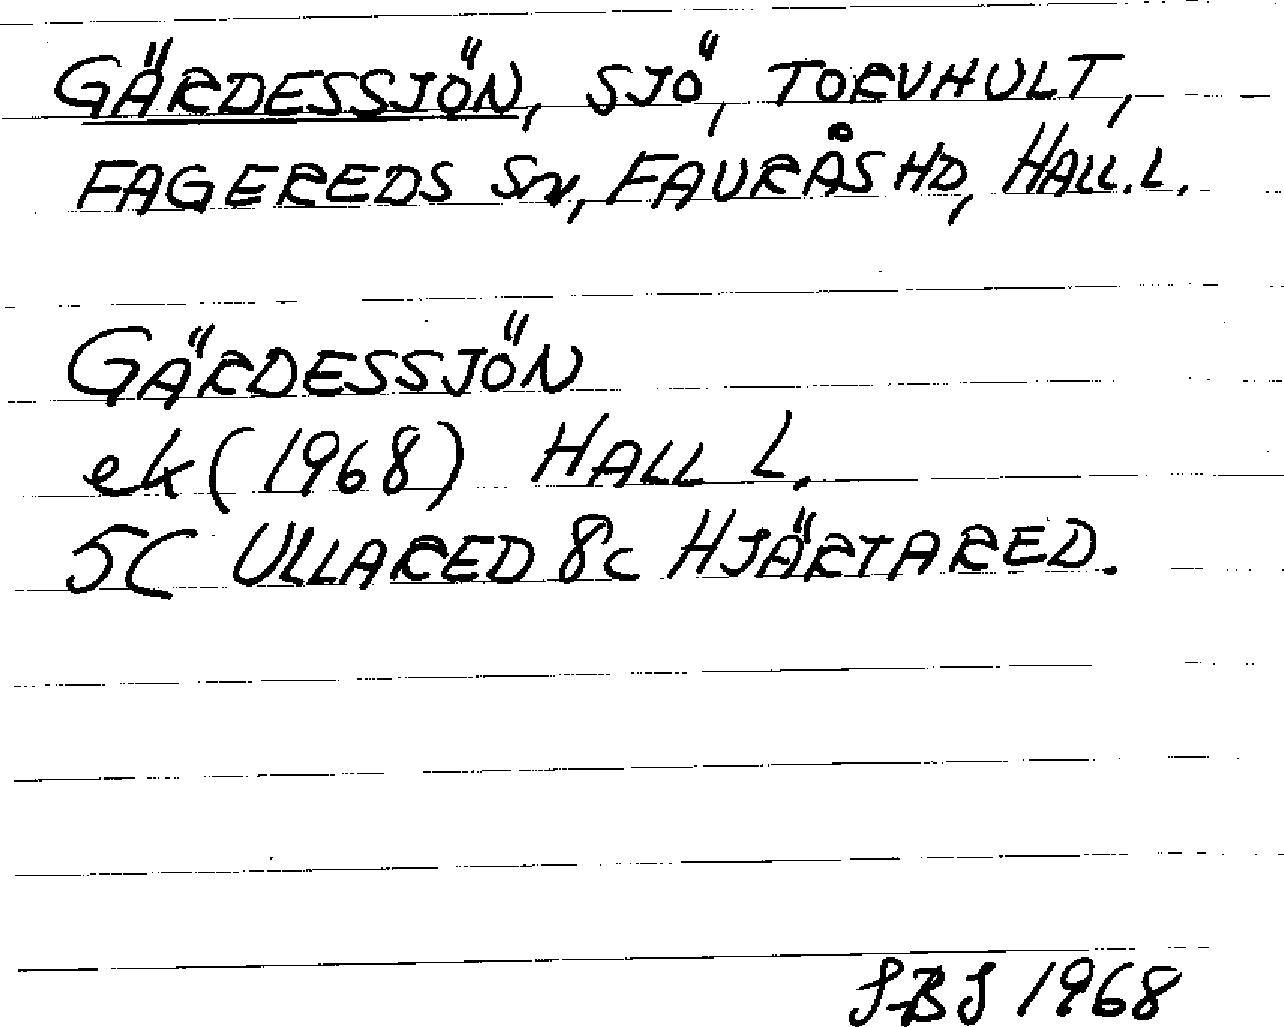 GÄRDESSJÖN, SJÖ, TORVHULT,
FAGEREDS SN, FAURÅS HD, HALL.L.
GÄRDESSJÖN
ek (1968) HALL L.
5C ULLARED 8c HJÄRTARED.
SBS 1968